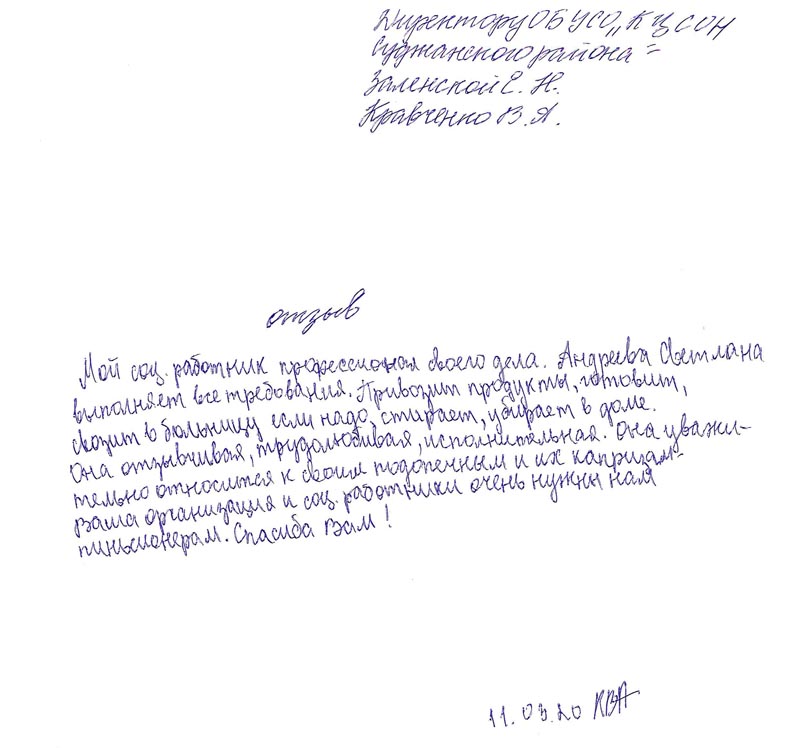 Директору ОБУСО „КЦСОН
Суджанского района"
Заленской Е. Н.
Кравченко В. А.
отзыв
Мой соц. работник профессионал своего дела. Андреева Светлана
выполняет все требования. Привозит продукты, готовит,
свозит в больницу если надо, стирает, убирает в доме.
Она отзывчивая, трудолюбивая, исполнительная. Она уважи-
тельно относится к своим подопечным и их капризам.
Ваша организация и соц. работники очень нужны нам
пиньсионерам. Спасиба Вам!
11.03.20 КВА